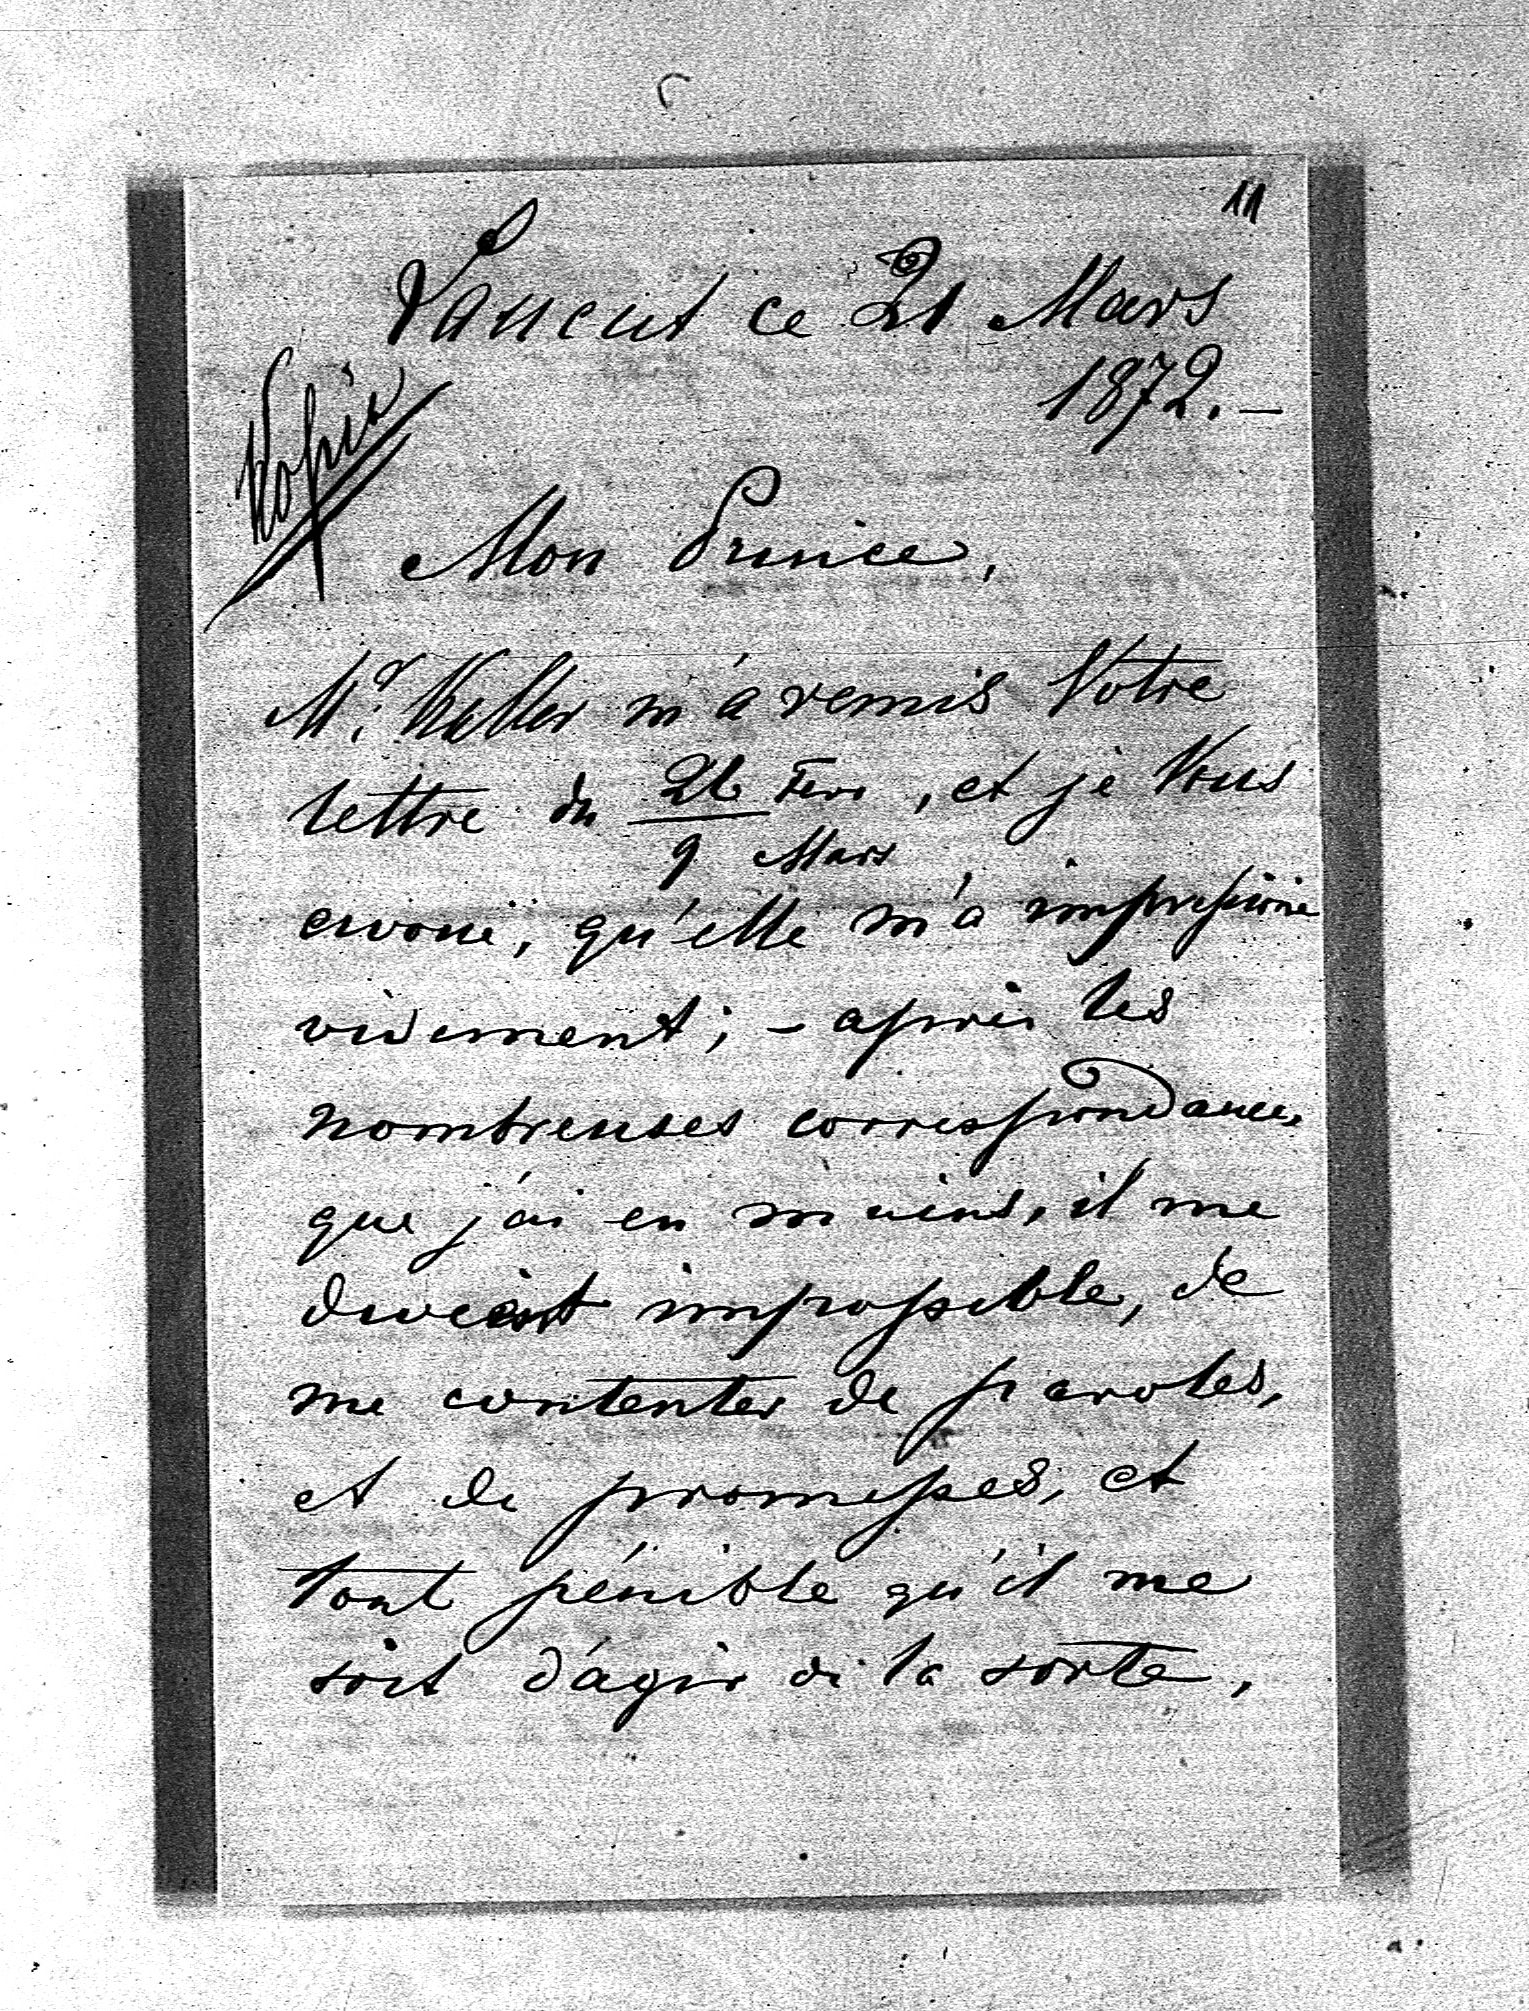 11
Łańcut ce 21 Mars
1872. –
Kopia
Mon Prince,
Mr. Keller m'a remis Votre
lettre du 26 Fevr / 9 Mars, et je Vous
avoue, qu'elle m'a impressioné
vivement; – après les
nombreuses correspondances
que j'ai en mains, il me
devient impossible, de
me contenter de paroles,
et de promesses, et
tout pénible qu'il me
soit d'agir de la sorte,